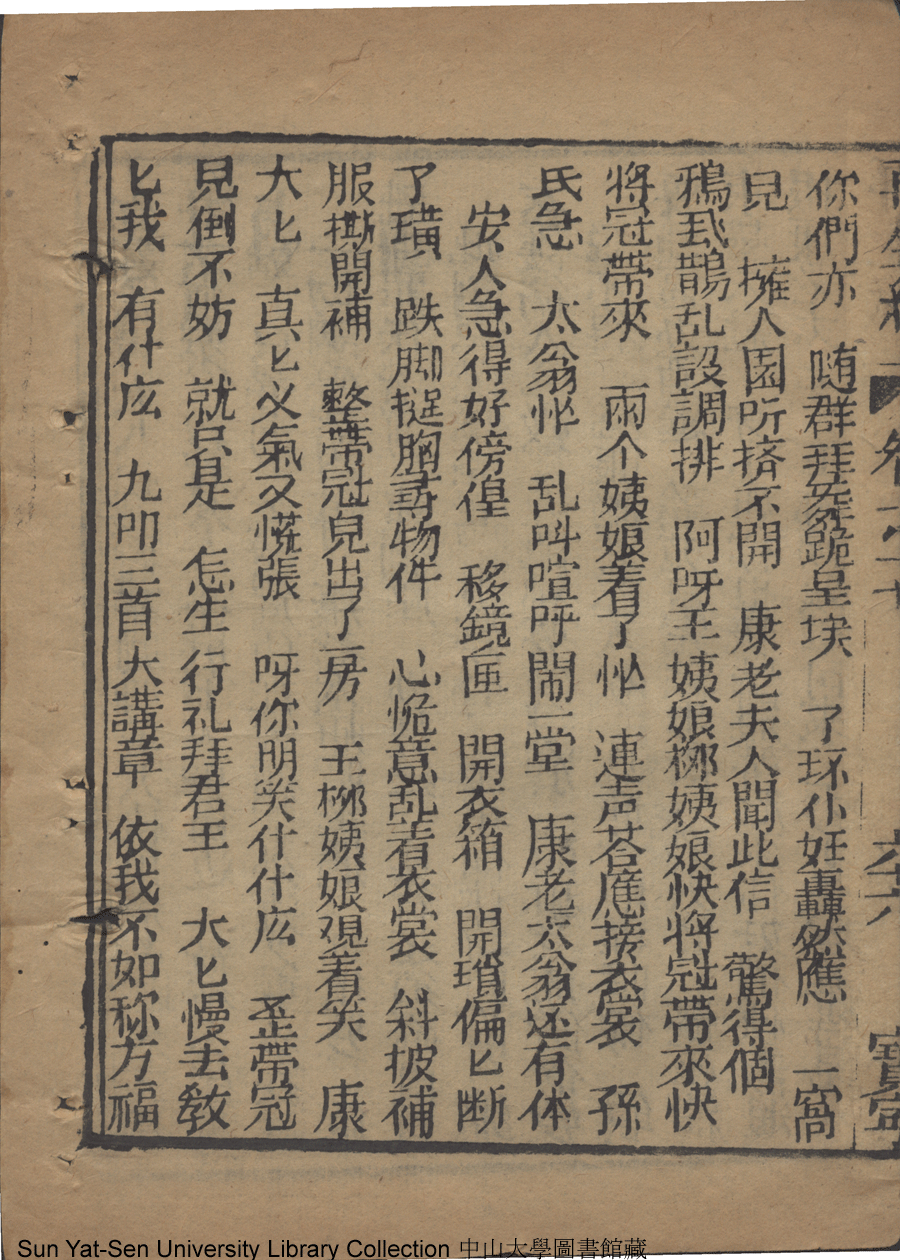 你們亦 随群拜舞跪呈块 了环仆妊轟然應 一窩
見 擁人園听挤不開 康老夫人聞此信 驚得個
鴉 鵲乱設調排 阿呀王姨娘桞姨娘快將冠帶來快
將冠帶來 兩个姨娘着了忙 連声荅應接衣裳 孫
氏急 太翁忙 乱呌喧呼閙一堂 康老太翁还有体
安人急得好傍偟 移鏡匣 開衣箱 開瑣偏匕断
了璜 跌脚搥胸尋物件 心慌意乱着衣裳 斜披補
服撕開補 整帶冠兒出了房 王桞姨娘观着笑 康
大匕 真匕必氣又慌張 呀你明笑什什庅 歪帶冠
見倒不妨 就只是 怎生行礼拜君王 大匕慢去敎
匕我 有什庅 九叩三首大講章 依我不如称方福
Sun Yat-Sen University Library Collection 中山大學圖書館藏